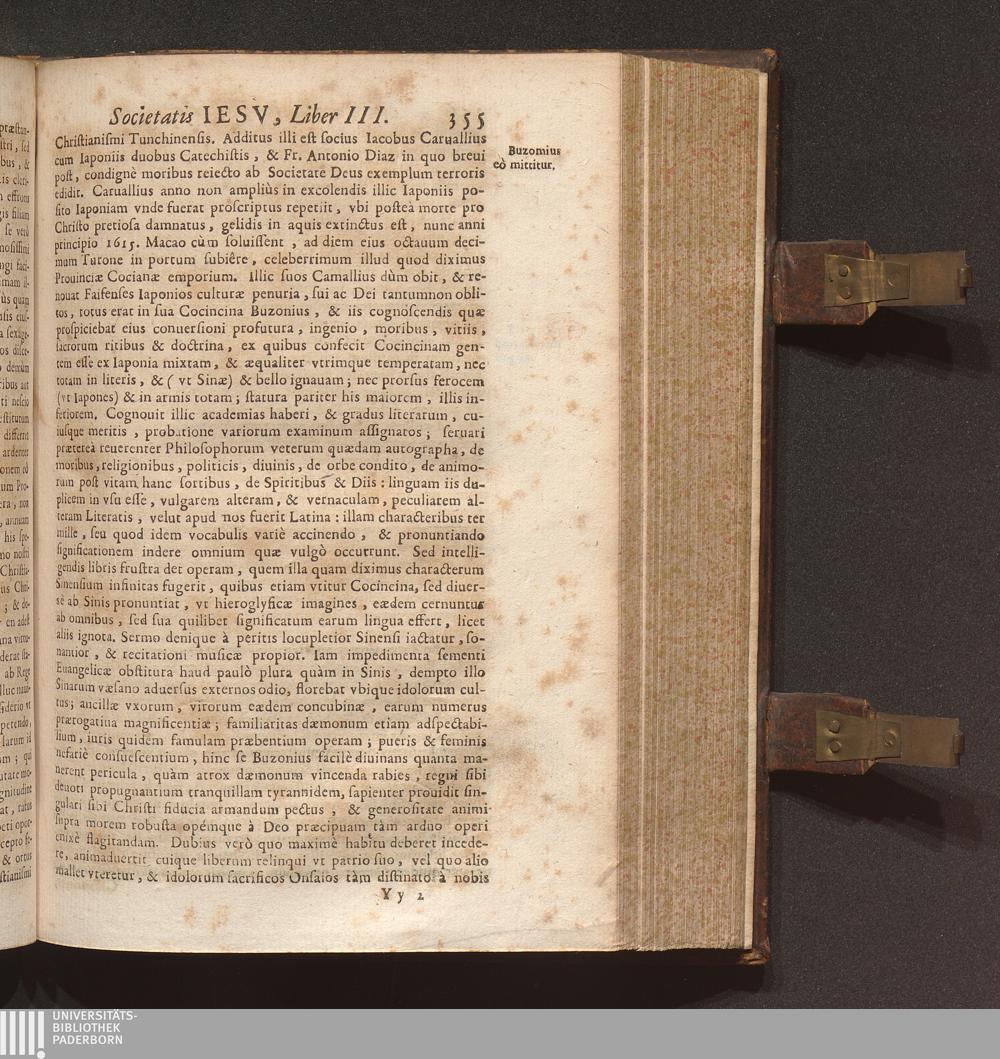 Societatis IESV, Liber III. 355
Christianismi Tunchinensis. Additus illi est socius Iacobus Caruallius
cum Iaponiis duobus Catechistis, & Fr. Antonio Diaz in quo breui
post, condignè moribus reiecto ab Societate Deus exemplum terroris
edidit. Caruallius anno non ampliùs in excolendis illic Iaponiis po-
sito Iaponiam vnde fuerat proscriptus repetiit, vbi posteà morte pro
Christo pretiosa damnatus, gelidis in aquis extinctus est, nunc anni
principio 1615. Macao cùm soluissent, ad diem eius octauum deci-
mum Turone in portum subiêre, celeberrimum illud quod diximus
Prouinciæ Cocianæ emporium. Illic suos Camallius dùm obit, & re-
nouat Faifenses Iaponios culturæ penuria, sui ac Dei tantumnon obli-
tos, totus erat in sua Cocincina Buzonius, & iis cognoscendis quæ
prospiciebat eius conuersioni profutura, ingenio, moribus, vitiis,
sacrorum ritibus & doctrina, ex quibus confecit Cocincinam gen-
tem esse ex Iaponia mixtam, & æqualiter vtrimque temperatam, nec
totam in literis, & ( vt Sinæ) & bello ignauam; nec prorsus ferocem
(vt Iapones) & in armis totam; statura pariter his maiorem, illis in-
feriorem, Cognouit illic academias haberi, & gradus literarum, cu-
iusque meritis, probatione variorum examinum assignatos; seruari
prætereà reuerenter Philosophorum veterum quædam autographa, de
moribus, religionibus, politicis, diuinis, de orbe condito, de animo-
rum post vitam hanc sortibus, de Spiritibus & Diis: linguam iis du-
plicem in vsu esse, vulgarem alteram, & vernaculam, peculiarem al-
teram Literatis, velut apud nos fuerit Latina: illam characteribus ter
mille, seu quod idem vocabulis variè accinendo, & pronuntiando
significationem indere omnium quæ vulgò occurrunt. Sed intelli-
gendis libris frustra det operam, quem illa quam diximus characterum
Sinensium infinitas fugerit, quibus etiam vtitur Cocincina, sed diuer-
sè ab Sinis pronuntiat, vt hieroglyficæ imagines, eædem cernuntur
ab omnibus, sed sua quilibet significatum earum lingua effert, licet
aliis ignota. Sermo denique à peritis locupletior Sinensi iactatur, so-
nantior, & recitationi musicæ propior. Iam impedimenta sementi
Euangelicæ obstitura haud paulò plura quàm in Sinis, dempto illo
Sinarum væsano aduersus externos odio, florebat vbique idolorum cul-
tus; ancillæ vxorum, virorum eædem concubinæ, earum numerus
prærogatiua magnificentiæ; familiaritas dæmonum etiam adspectabi-
lium, iuris quidem famulam præbentium operam; pueris & feminis
nefariè consuescentium, hinc se Buzonius facilè diuinans quanta ma-
nerent pericula, quàm atrox dæmonum vincenda rabies, regni sibi
deuoti propugnantium tranquillam tyrannidem, sapienter prouidit sin-
gulari sibi Christi fiducia armandum pectus, & generositate animi
supra morem robusta opémque à Deo præcipuam tàm arduo operi
enixè flagitandam. Dubius verò quo maximè habitu deberet incede-
re, animaduertit cuique liberum relinqui vt patrio suo, vel quo alio
mallet vteretur, & idolorum sacrificos Onsaios tàm distinato à nobis
Yy 2
Buzomius
eò mittitur.
UNIVERSITÄTS-
BIBLIOTHEK
PADERBORN